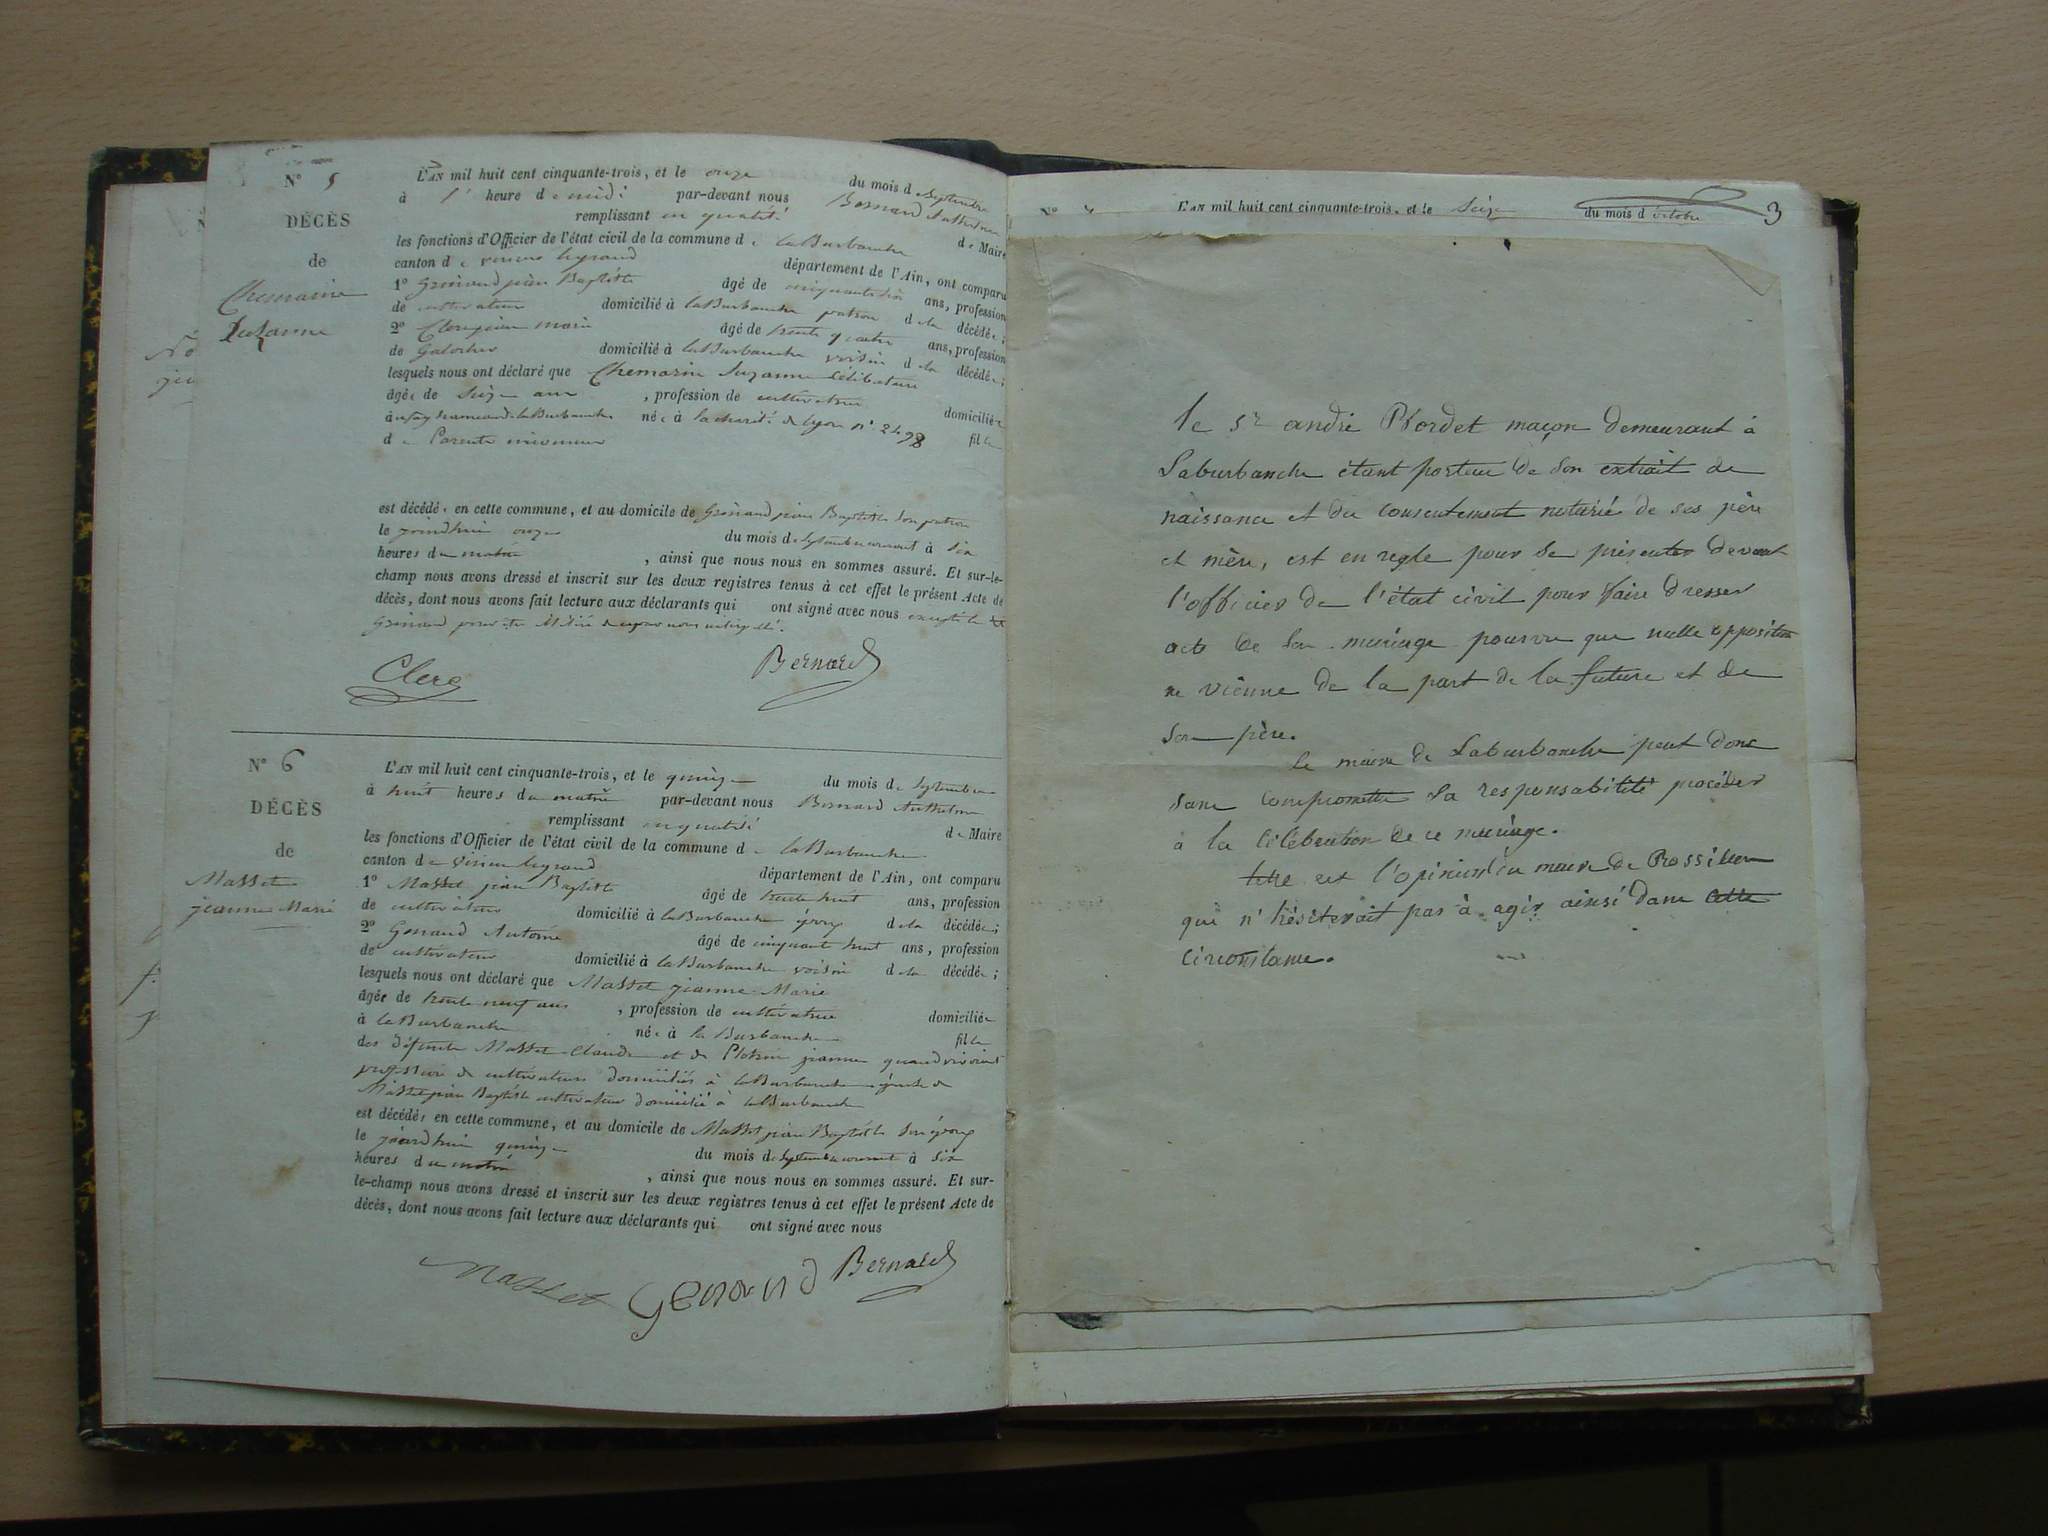 N° 5
DÉCÈS
de
Chemarin
Suzanne
L'AN mil huit cent cinquante-trois, et le onze du mois de Septembre
à 1' heure de midi par-devant nous Bernard Anthelme
remplissant en qualité de Maire
les fonctions d'Officier de l'état civil de la commune de laBurbanche
canton de virieu legrand département de l'Ain, ont comparu
1° jean Baptiste âgé de ans, profession
de cultivateur domicilié à laBurbanche patron de la décédée;
2° Clerc jean marie âgé de trente quatre ans, profession
de Galocher domicilié à laBurbanche voisin de la décédée;
lesquels nous ont déclaré que Chemarin Suzanne Célibataire
âgée de Seize ans, profession de cultivatrice domiciliée
hameau de laBurbanche née à la charité de Lyon n° 2498 fille
de Parents inconnus
est décédée en cette commune, et au domicile de jean Baptiste Son patron
le jourdhui onze du mois de Septembre courant à Six
heures du matin, ainsi que nous nous en sommes assuré. Et sur-le-
champ nous avons dressé et inscrit sur les deux registres tenus à cet effet le présent Acte de
décès, dont nous avons fait lecture aux déclarants qui ont signé avec nous excepté le
pour être illitéré de ce par nous interpellé.
Clerc Bernard
N° 6
DÉCÈS
de
Masset
jeanne Marie
L'AN mil huit cent cinquante-trois, et le quinze du mois de Septembre
à huit heures du matin par-devant nous Bernard Anthelme
remplissant en qualité de Maire
les fonctions d'Officier de l'état civil de la commune de laBurbanche
canton de virieu legrand département de l'Ain, ont comparu
1° Masset jean Baptiste âgé de trente huit ans, profession
de cultivateur domicilié à laBurbanche époux de la décédée;
2° Genand Antoine âgé de cinquante huit ans, profession
de cultivateur domicilié à laBurbanche voisin de la décédée;
lesquels nous ont déclaré que Masset jeanne Marie
âgée de trente neuf ans, profession de cultivatrice domiciliée
à laBurbanche née à la Burbanche fille
des défunts Masset Claude et de jeanne quand vivoient
profession de cultivateurs domiciliés à laBurbanche épouse de
Masset jean Baptiste cultivateur domicilié à laBurbanche
est décédée en cette commune, et au domicile de Masset jean Baptiste Son époux
le jourdhui quinze du mois de Septembre courant à Six
heures du matin, ainsi que nous nous en sommes assuré. Et sur-
le-champ nous avons dressé et inscrit sur les deux registres tenus à cet effet le présent Acte de
décès, dont nous avons fait lecture aux déclarants qui ont signé avec nous
Masset Genand Bernard
N° L'AN mil huit cent cinquante-trois, et le Seize du mois d'octobre 3
le Sr andré Plordet maçon demeurant à
Laburbanche étant porteur de son extrait de
naissance et du consentement notarié de ses père
et mère, est en regle pour se présenter devant
l'officier de l'état civil pour faire dresser
acte de son mariage pourvu que nulle opposition
ne vienne de la part de la future et de
son père.
le maire de Laburbanche peut donc
sans compromettre sa responsabilité procéder
à la célébration de ce mariage.
telle est l'opinion du maire de Rossillon
qui n'hésiterait pas à agir ainsi dans cette
circonstance.